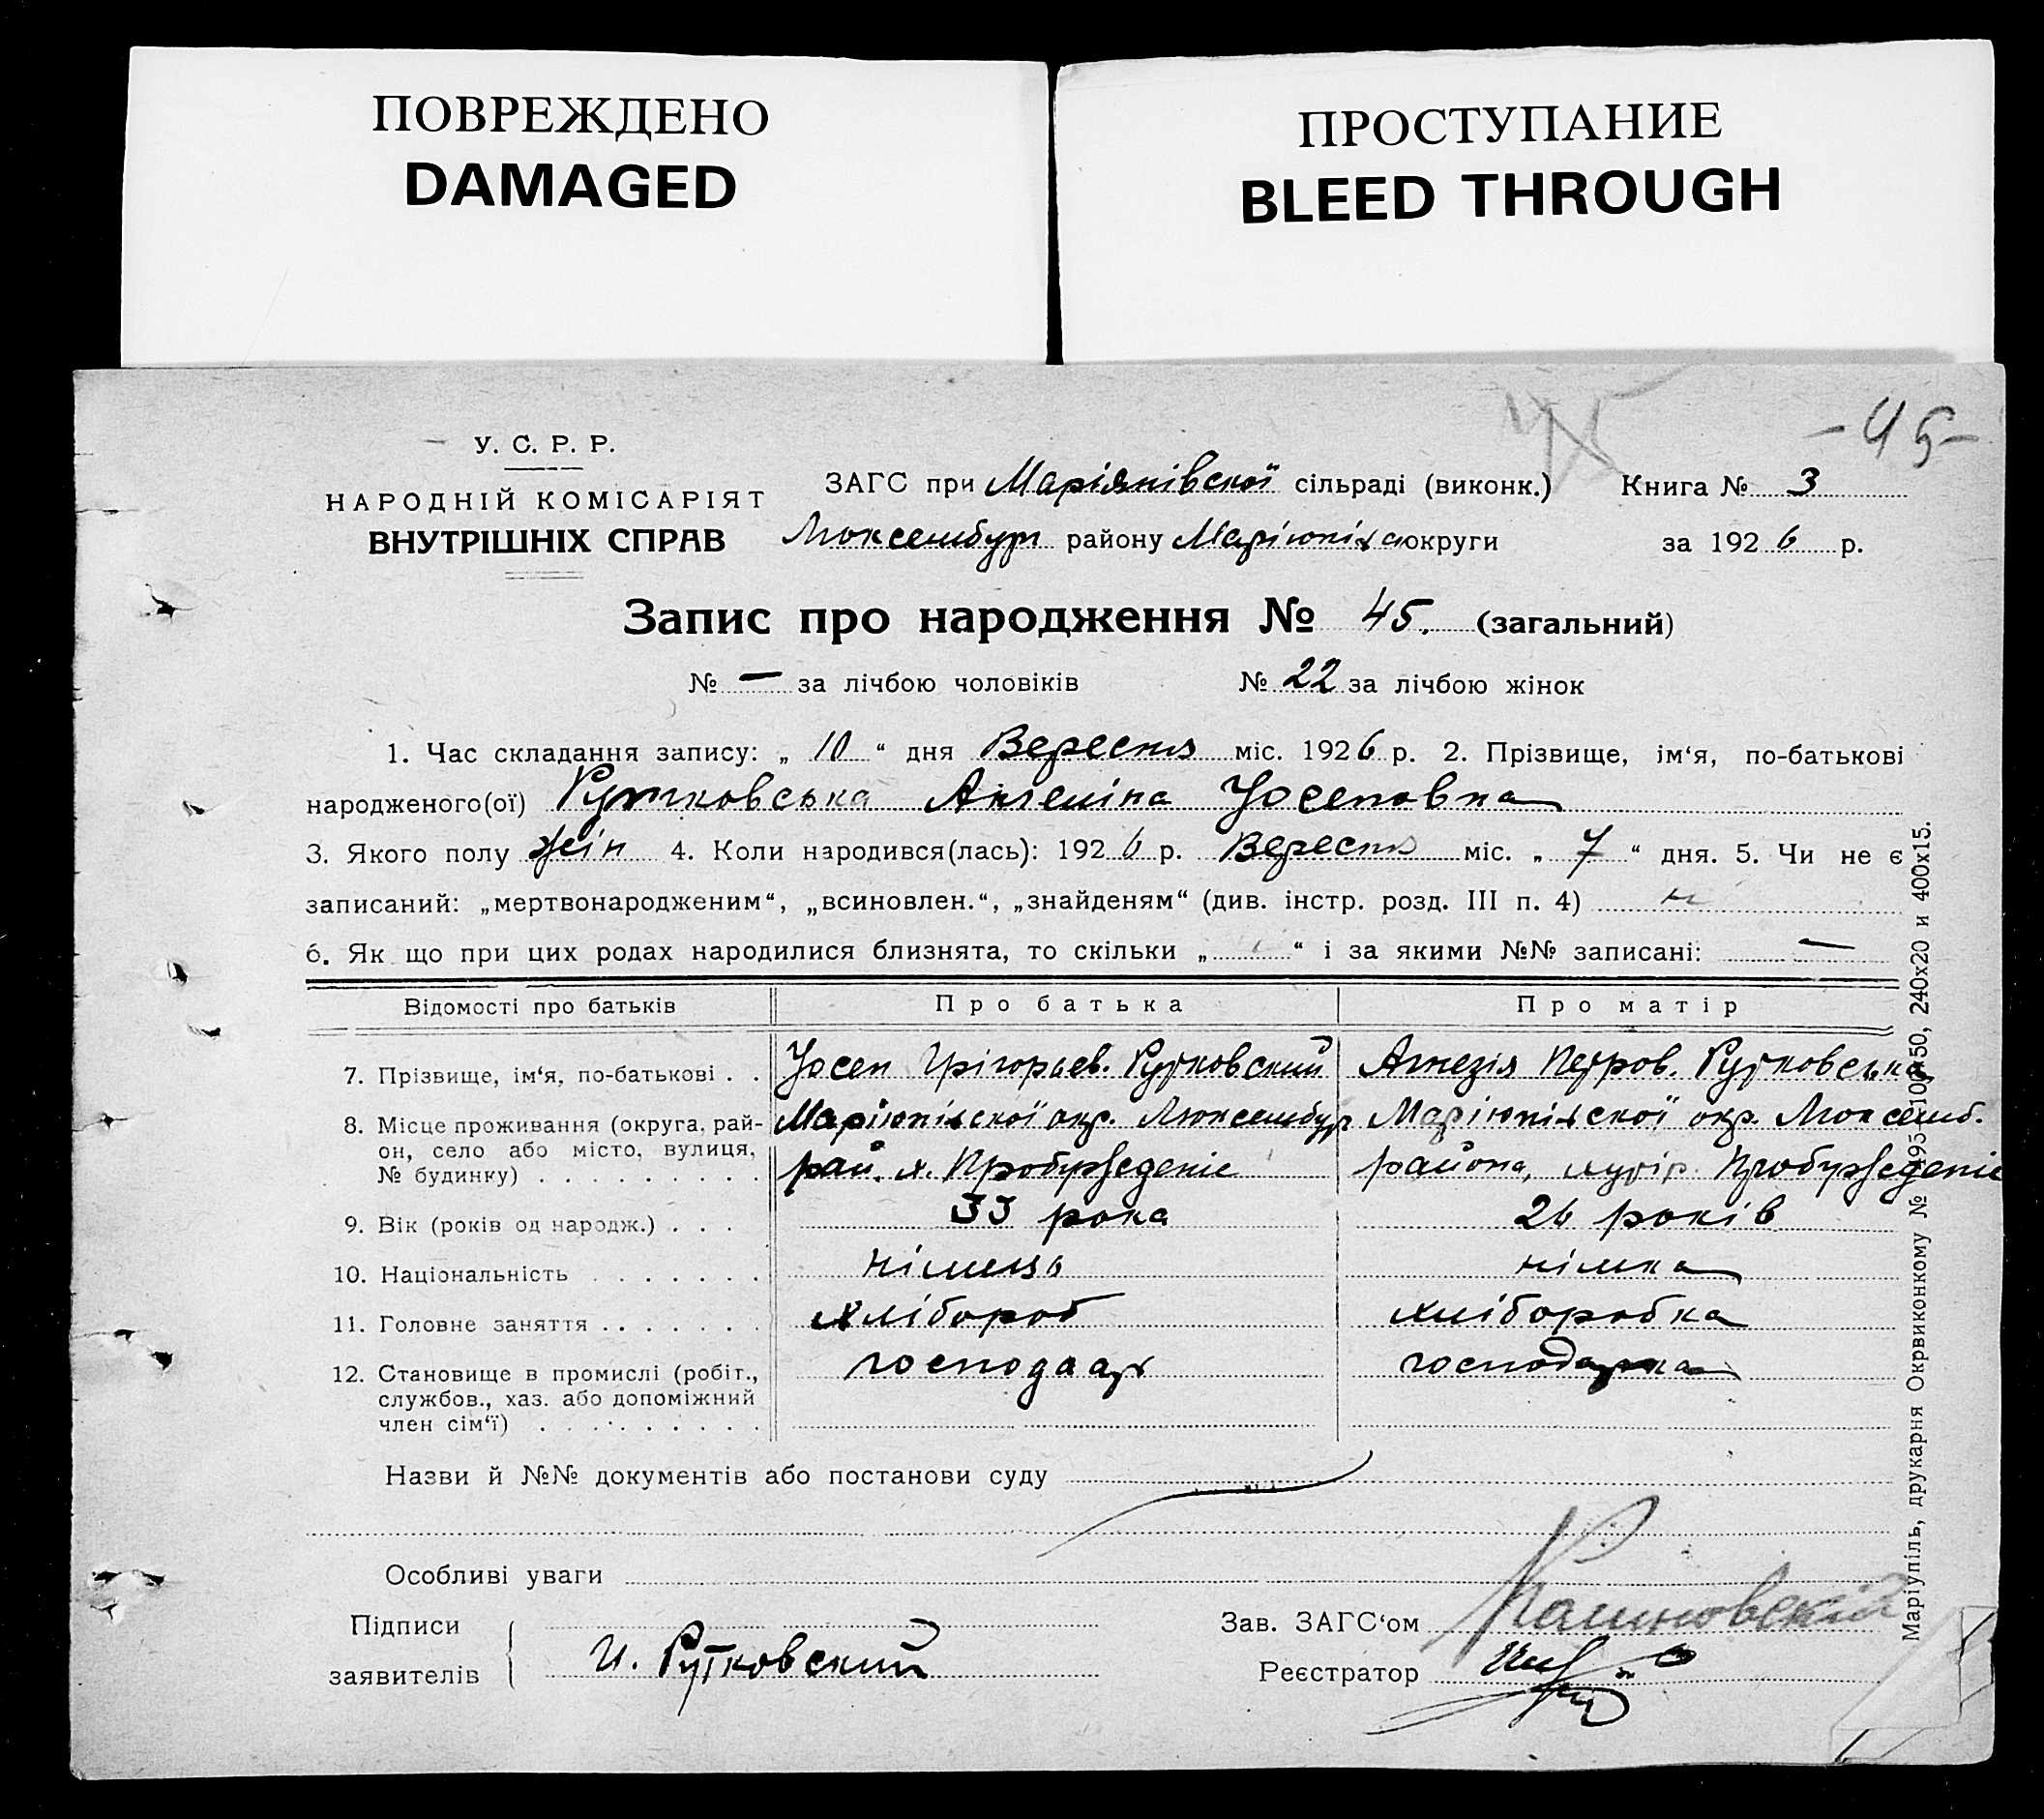 ПОВРЕЖДЕНО
DAMAGED
ПРОСТУПАНИЕ
BLEED THROUGH
- 45 -
У. С. Р. Р.
НАРОДНІЙ КОМІСАРІЯТ
ВНУТРІШНІХ СПРАВ
ЗАГС при Маріянівской сільраді (виконк.) Книга № 3
Люксембург району Маріюпіл округи за 1926 р.
Запис про народження № 45. (загальний)
№ — за лічбою чоловіків № 22 за лічбою жінок
1. Час складання запису: „ 10 “ дня Вересня міс. 1926 р. 2. Прізвище, ім‘я, по-батькові
народженого(ої) Рутковська Ангеліна Йосеповна
3. Якого полу жін 4. Коли народився(лась): 1926 р. Вересня міс. „ 7 “ дня. 5. Чи не є
записаний: „мертвонародженим“, „всиновлен.“, „знайденям“ (див. інстр. розд. III п. 4)
6. Як що при цих родах народилися близнята, то скільки „ “ і за якими №№ записані: —
Відомості про батьків Про батька Про матір
7. Прізвище, ім‘я, по-батькові . . Йосеп Грігорьев. Рутковский Агнезія Петров. Рутковська
8. Місце проживання (округа, рай-
он, село або місто, вулиця,
№ будинку)
Маріюпільскої окр. Люксембур
рай. х.
Маріюпільскої окр. Люксемб.
района, хутір
9. Вік (років од народж.) . . . 33 рока 26 років
10. Національність німець німка
11. Головне заняття хлібороб хліборобка
12. Становище в промислі (робіт.,
службов., хаз. або допоміжний
член сім‘ї)
господаар господарка
Назви й №№ документів або постанови суду
Особливі уваги
Підписи
заявителів
И. Рутковский
Зав. ЗАГС‘ом
Реєстратор
Маріупіль, друкарня Окрвиконкому № 195—100×50, 240х20 и 400х15.